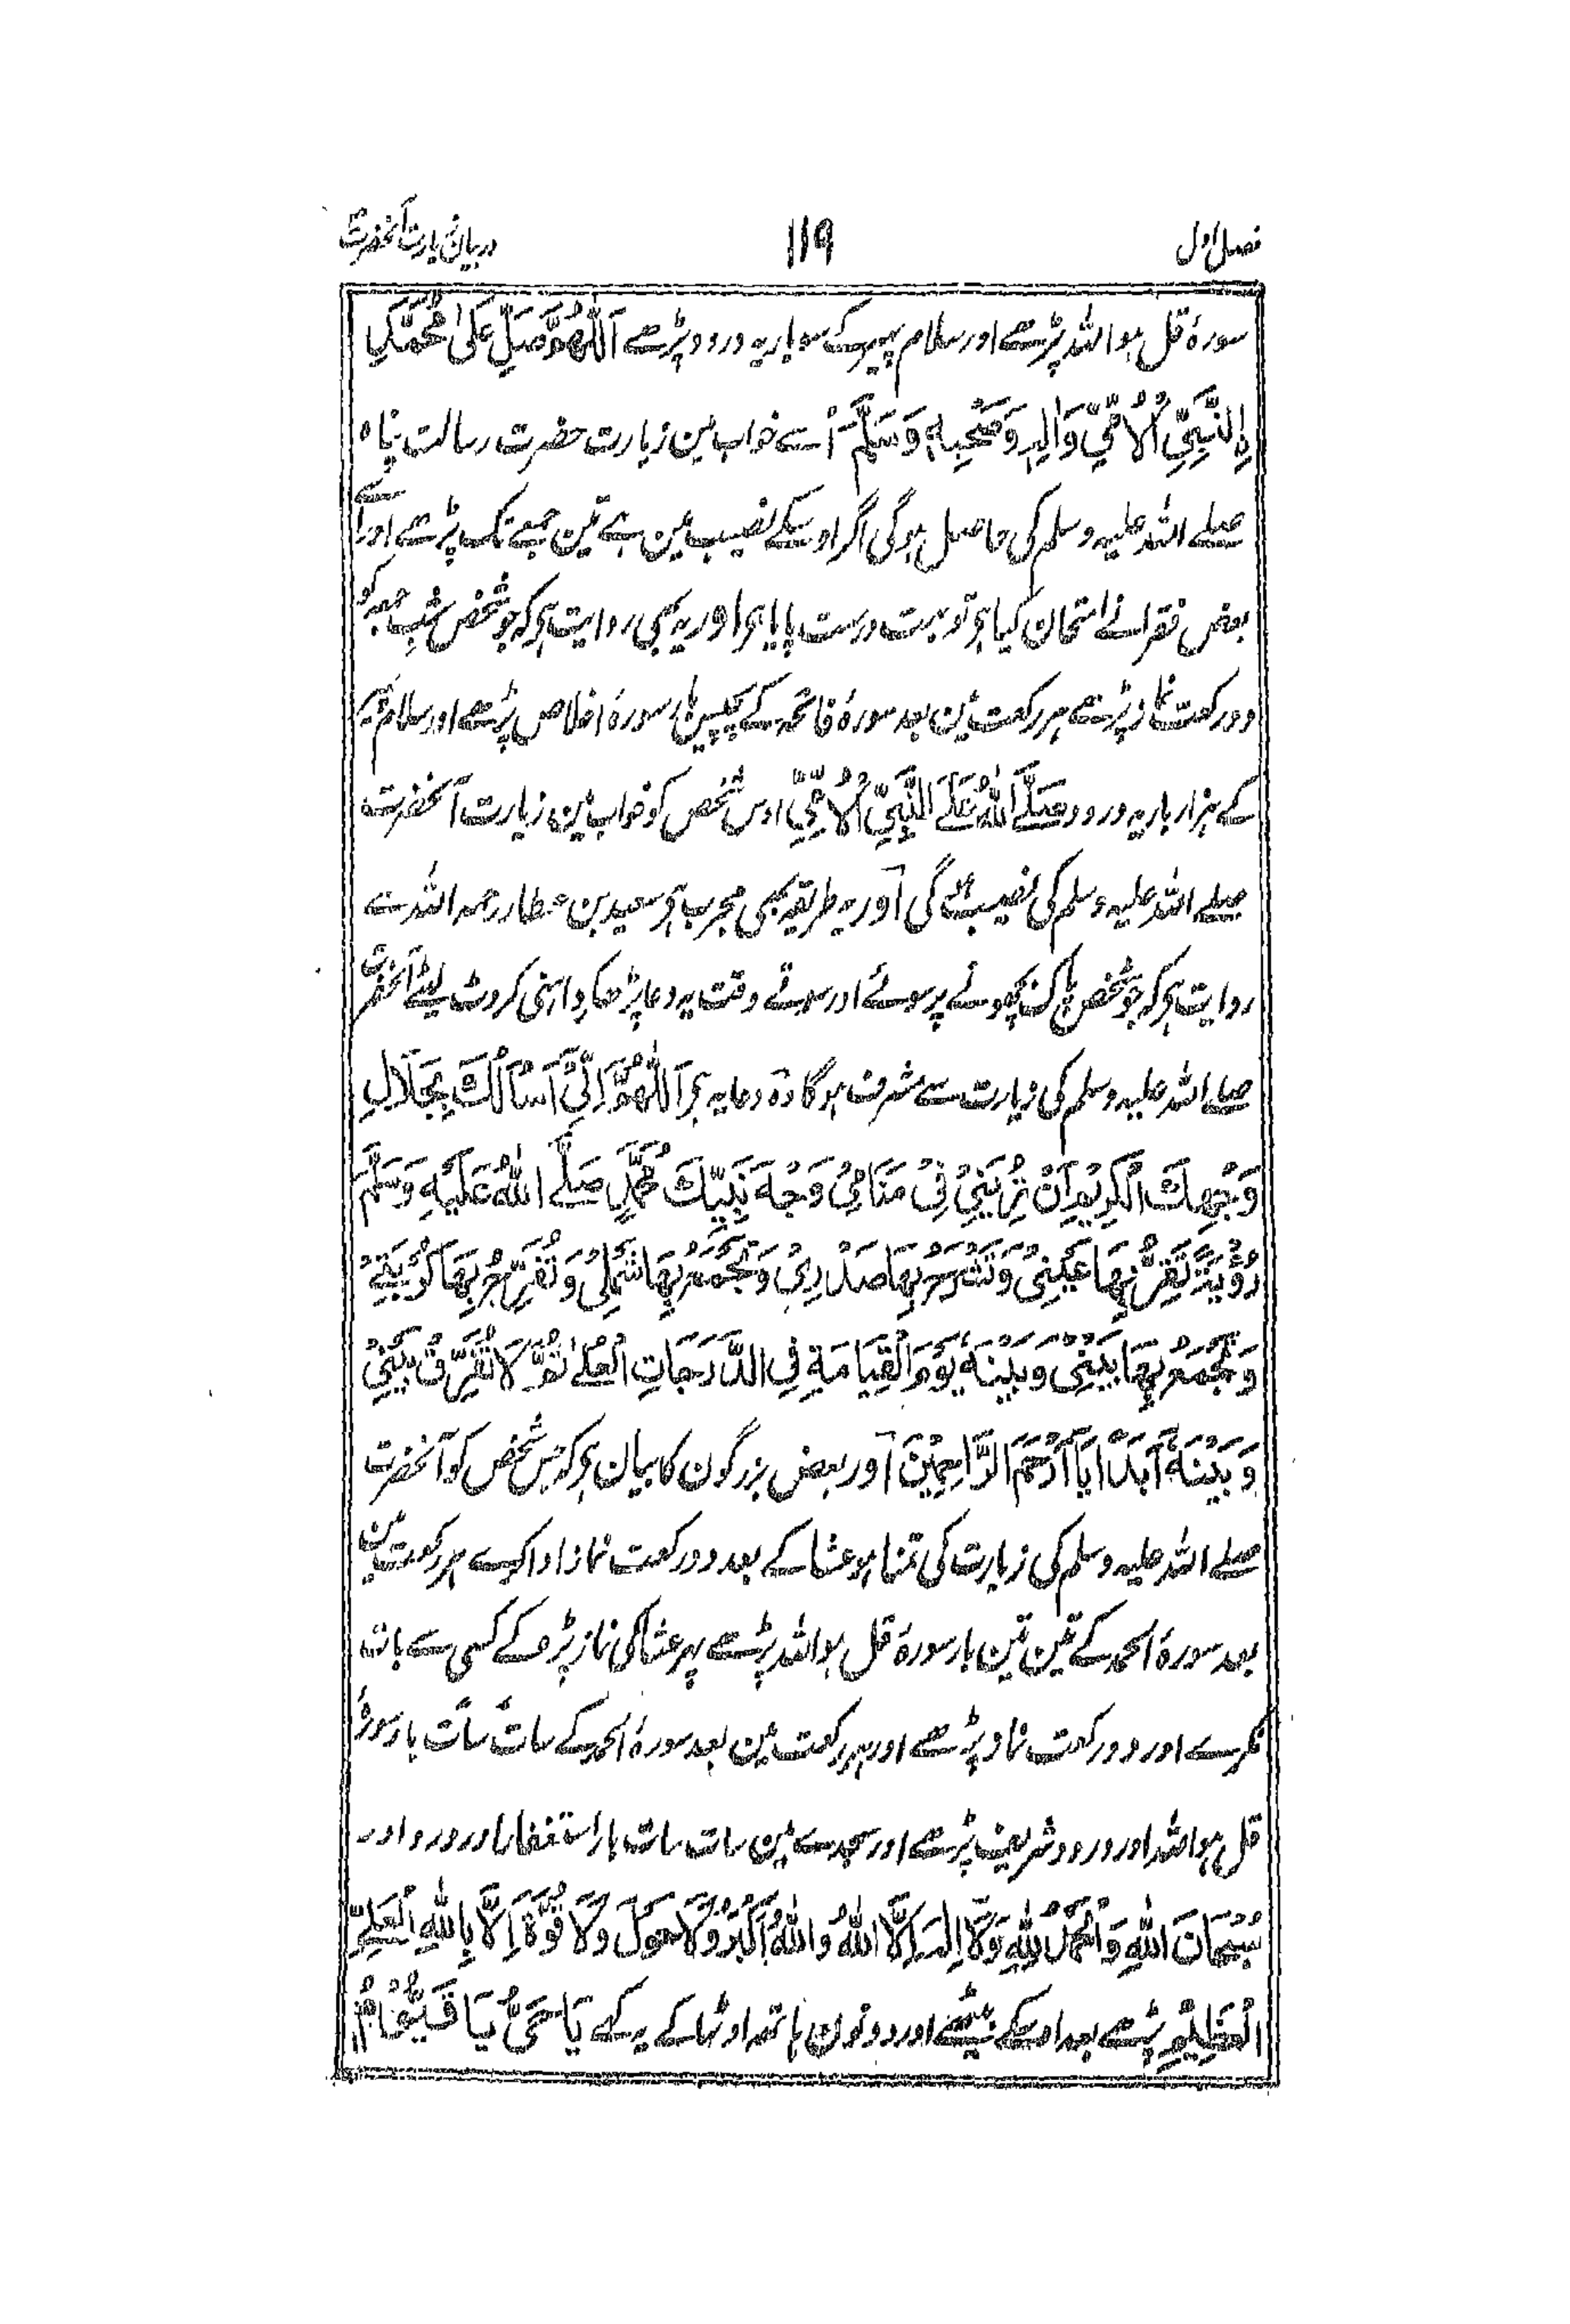 فصل اول ۱۱۹ در بیان زیارت آنحضرت
سورۂ قل ہو اللہ پڑھے اور سلام پہیر کے سو بار یہ درود پڑھے اَللّٰهُمَّ صَلِّ عَلٰى مُحَمَّدِ
نِالنَّبِيِّ الْاُمِّيِّ وَاٰلِهٖ وَصَحْبِهٖ وَسَلَّمَ اُسے خواب مین زیارت حضرت رسالت پناہ
صلے اللہ علیہ وسلم کی حاصل ہوگی اگر اوسکے نصیب مین ہے تین جمعے تک پڑھے اور اسکے
بعض فقرا نے امتحان کیا ہر تو بہت درست پایا ہر اور یہ بھی روایت ہر کہ جو شخص شب جمعہ کو
دو رکعت نماز پڑھے ہر رکعت مین بعد سورۂ فاتحہ کے پچیس بار سورۂ اخلاص پڑھے اور سلام پہیر
کے ہزار بار یہ درود صَلَّى اللّٰهُ عَلَى النَّبِيِّ الْاُمِّيِّ اوس شخص کو خواب مین زیارت آنحضرت
صلے اللہ علیہ وسلم کی نصیب ہوگی اور یہ طریقہ بھی مجرب ہر سعید بن عطار رحمہ اللہ سے
روایت ہر کہ جو شخص پاک بچھونے پر سوئے اور سوتے وقت یہ دعا پڑھکر داہنی کروٹ لیٹے آنحضرت
صلے اللہ علیہ وسلم کی زیارت سے مشرف ہوگا وہ دعا یہ ہر اَللّٰهُمَّ اِنِّيْ اَسْاَلُكَ بِجَلَالِ
وَجْهِكَ الْكَرِيْمِ اَنْ تُرِيَنِيْ فِيْ مَنَامِيْ وَجْهَ نَبِيِّكَ مُحَمَّدٍ صَلَّى اللّٰهُ عَلَيْهِ وَسَلَّمَ
رُؤْيَةً تَقَرُّ بِهَا عَيْنِيْ وَتَشْرَحُ بِهَا صَدْرِيْ وَتَجْمَعُ بِهَا شَمْلِيْ وَتُفَرِّجُ بِهَا كُرْبَتِيْ
وَتَجْمَعُ بِهَا بَيْنِيْ وَبَيْنَهٗ يَوْمَ الْقِيَامَةِ فِي الدَّرَجَاتِ الْعُلٰى ثُمَّ لَا تُفَرِّقُ بَيْنِيْ
وَبَيْنَهٗ اَبَدًا يَا اَرْحَمَ الرَّاحِمِيْنَ اور بعض بزرگون کا بیان ہر کہ جس شخص کو آنحضرت
صلے اللہ علیہ وسلم کی زیارت کی تمنا ہو عشا کے بعد دو رکعت نماز ادا کرے ہر رکعت مین
بعد سورۂ الحمد کے تین تین بار سورۂ قل ہو اللہ پڑھے پہر عشا کی نماز پڑھ کے کسی سے بات
نکرے اور دو رکعت نماز پڑھے اور ہر رکعت مین بعد سورۂ الحمد کے سات سات بار سورۂ
قل ہو اللہ اور درود شریف پڑھے اور سجدے مین سات سات بار استغفار اور درود اور
سُبْحَانَ اللّٰهِ وَالْحَمْدُ لِلّٰهِ وَلَا اِلٰهَ اِلَّا اللّٰهُ وَاللّٰهُ اَكْبَرُ وَلَا حَوْلَ وَلَا قُوَّةَ اِلَّا بِاللّٰهِ الْعَلِيِّ
الْعَظِيْمِ پڑھے بعد اوسکے بیٹھے اور دونون ہاتھ اوٹھا کے یہ کہے يَا حَيُّ يَا قَيُّوْمُ